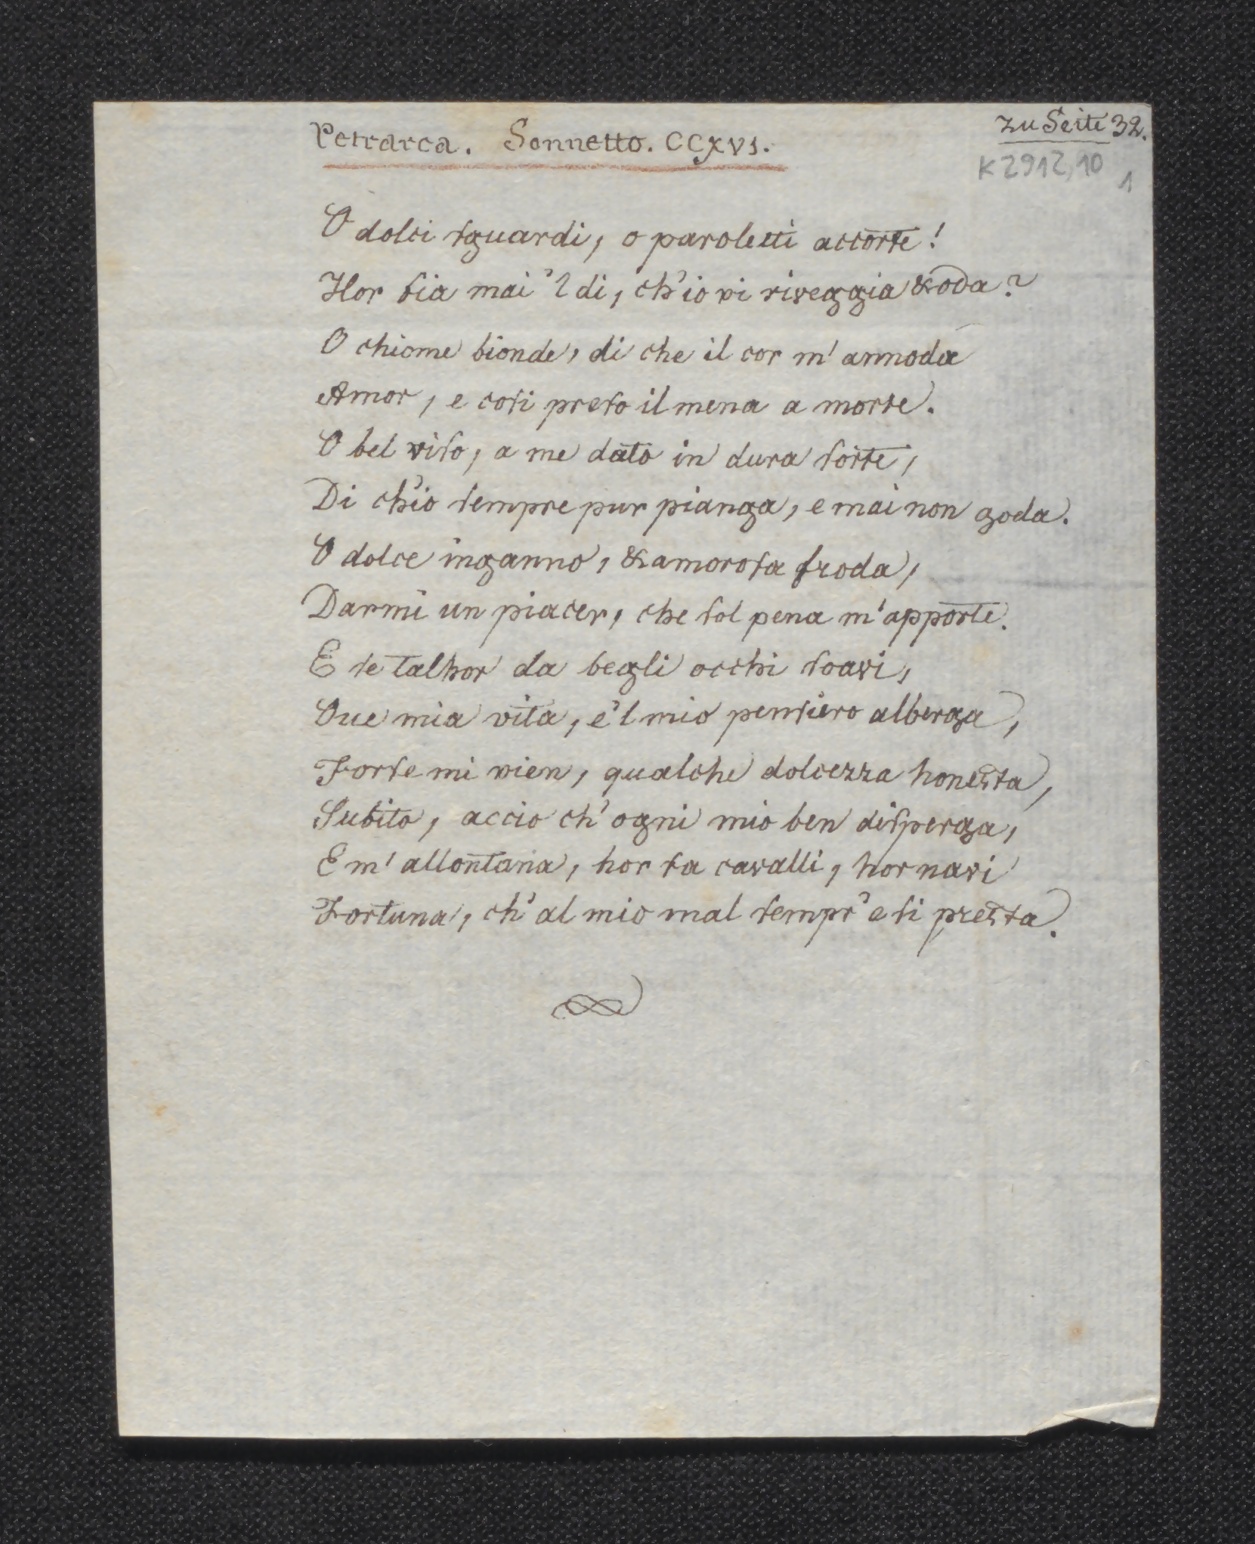 Petrarca. Sonnetto. CCXVI.
zu Seite 32.
K2912,10
1
O dolci sguardi, o parolette accorte!
Hor fia mai'l di, ch'io vi riveggia & oda?
O chiome bionde, di che il cor m'annoda
Amor, e cosi preso il mena a morte.
O bel viso, a me dato in dura sorte,
Di ch'io sempre pur pianga, e mai non goda.
O dolce inganno, & amorosa froda,
Darmi un piacer, che sol pena m'apporte.
E se talhor da begli occhi soavi,
Oue mia vita, e'l mio pensiero alberga,
Forse mi vien, qualche dolcezza honesta,
Subito, accio ch'ogni mio ben disperga,
E m'allontana, hor fa cavalli, hor navi
Fortuna, ch'al mio mal sempr'e si presta.